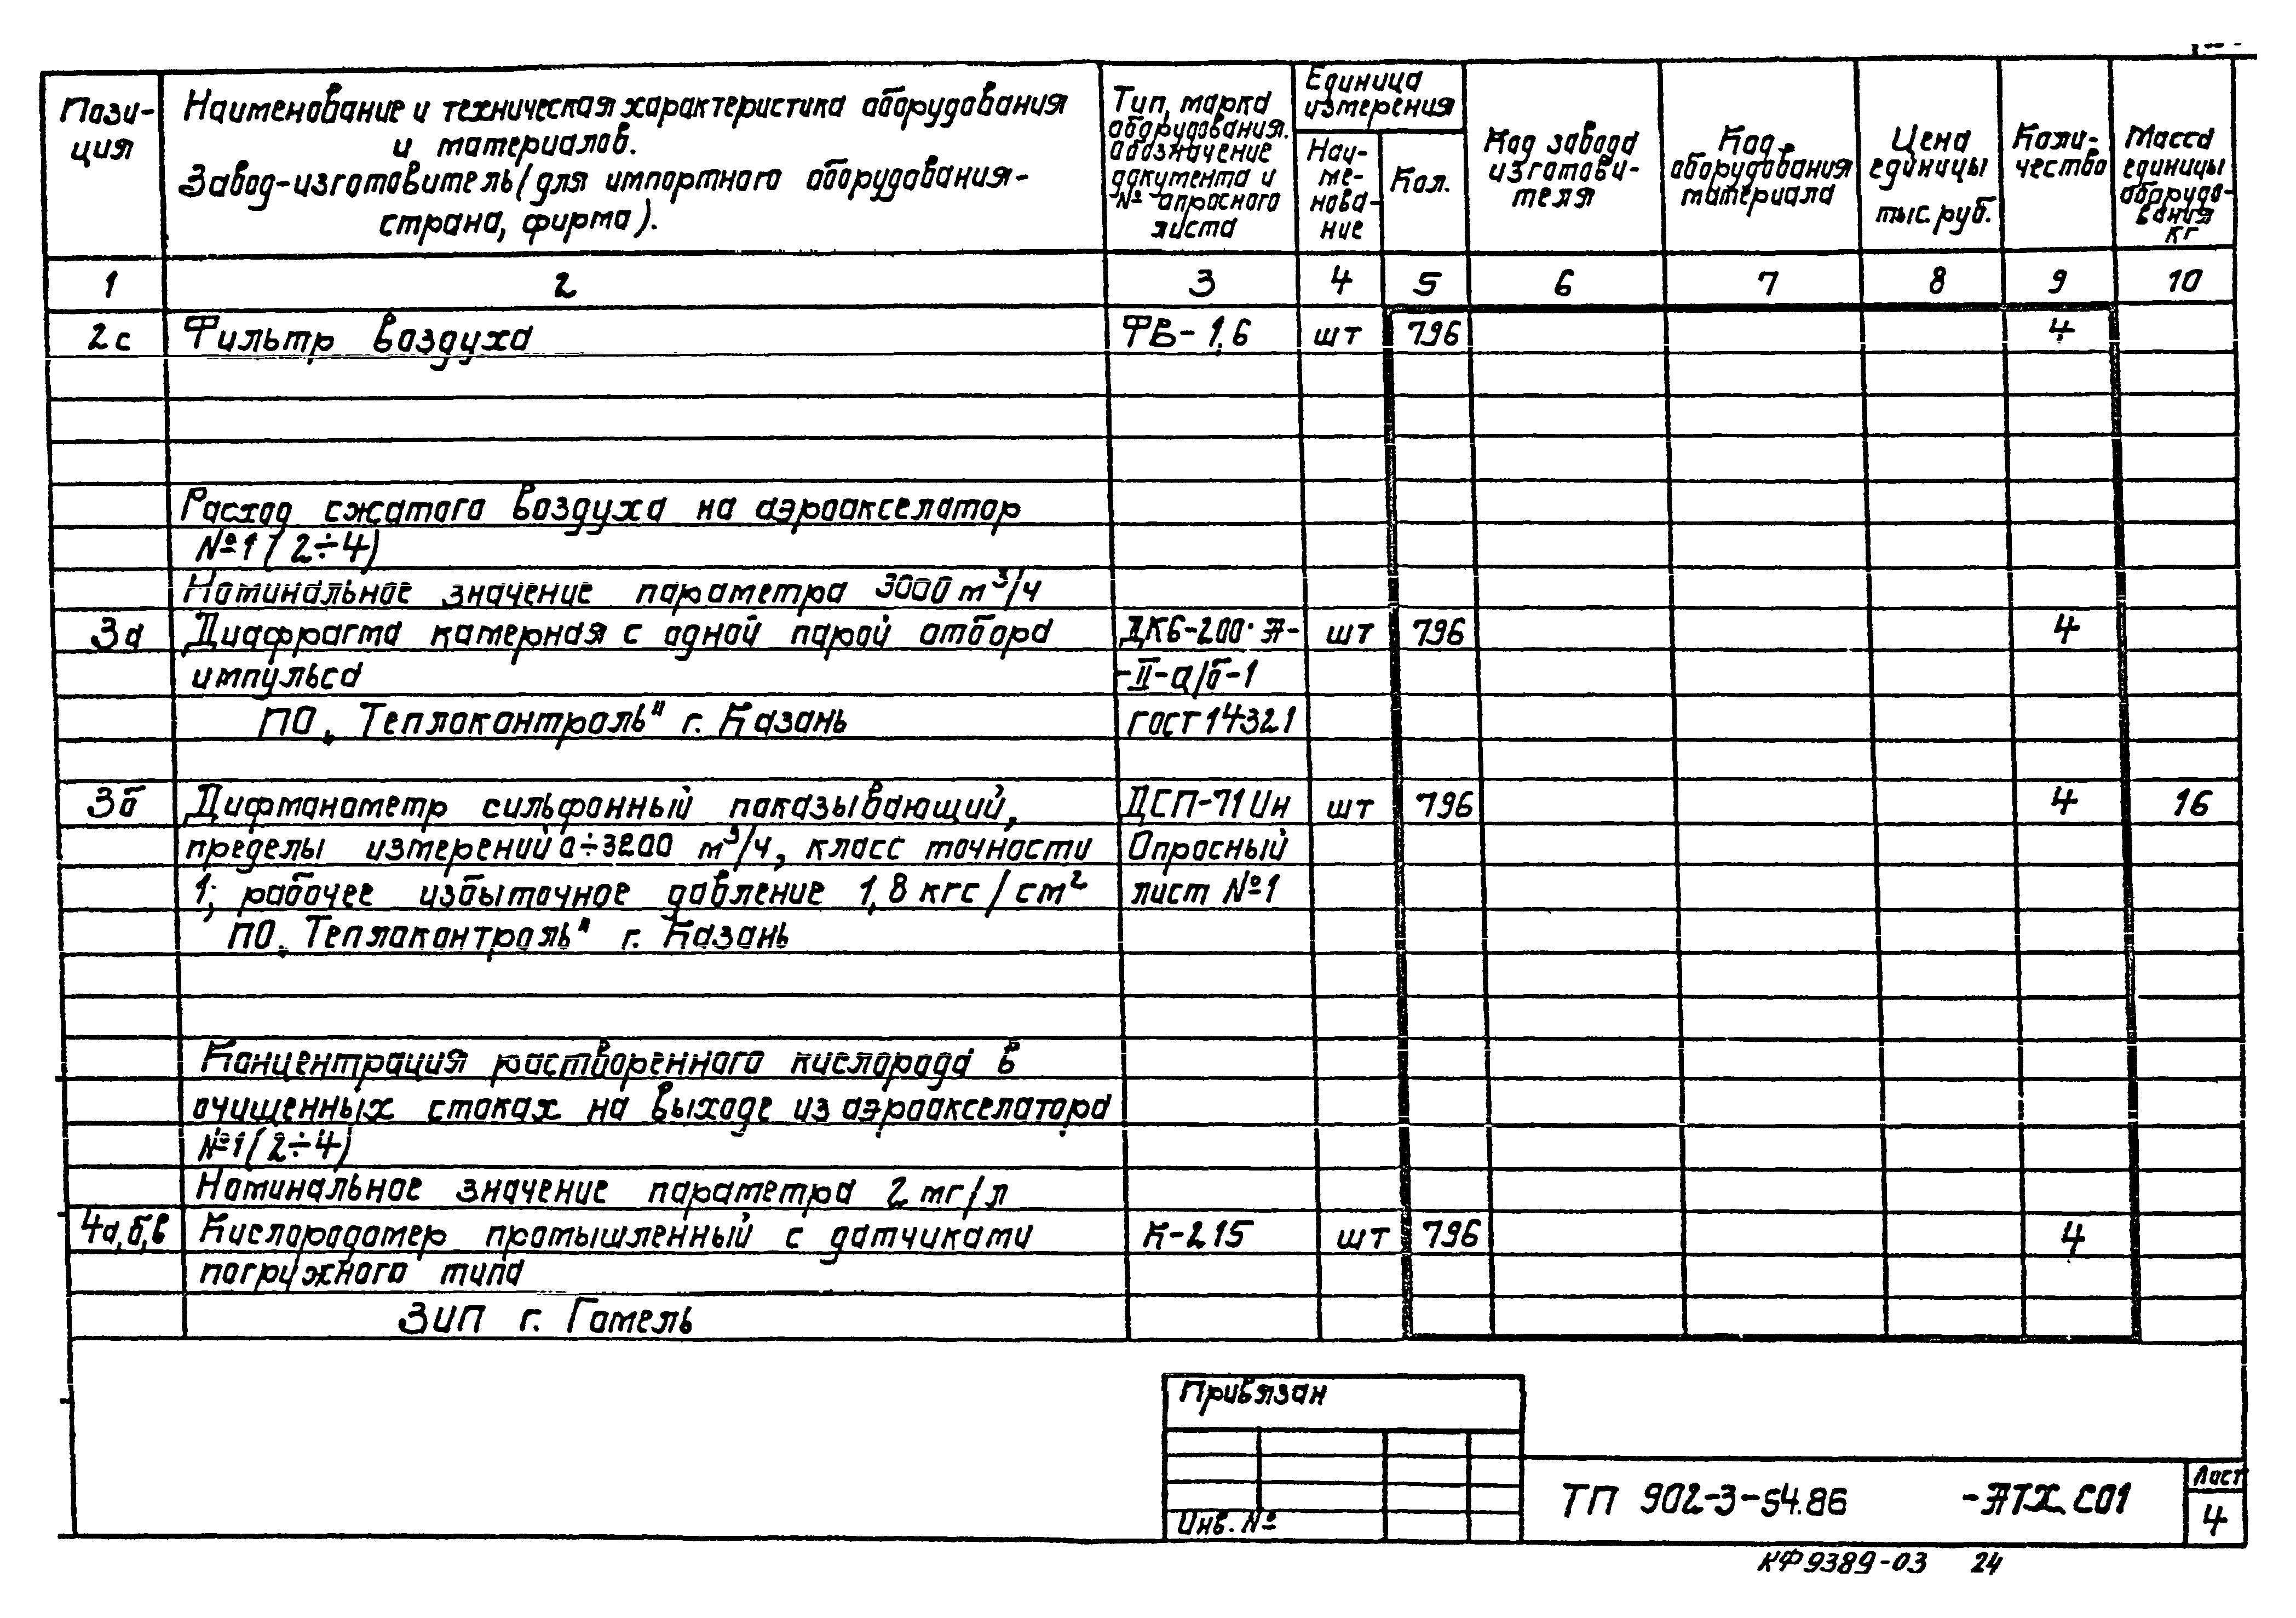 Пози-
ция
Наименование и техническая характеристика оборудования
и материалов.
Завод-изготовитель (для импортного оборудования-
страна, фирма).
Тип, марка
оборудования.
обозначение
документа и
№ опросного
листа
Единица
измерения
Наи-
ме-
нова-
ние
Кол.
Код завода
изготови-
теля
Код
оборудования
материала
Цена
единицы
тыс. руб.
Коли-
чество
Масса
единицы
оборудо-
вания
кг
1 2 3 4 5 6 7 8 9 10
2с Фильтр воздуха ФВ-1,6 шт 796 4
Расход сжатого воздуха на аэроакселатор
№1 (2÷4)
Номинальное значение параметра 3000 м³/ч
3а Диафрагма камерная с одной парой отбора ДК6-200·А- шт 796 4
импульса -II-а/б-1
ПО „Теплоконтроль" г. Казань ГОСТ 14321
3б Дифманометр сильфонный показывающий, ДСП-71Ин шт 796 4 16
пределы измерений 0÷3200 м³/ч, класс точности Опросный
1; рабочее избыточное давление 1,8 кгс/см² лист №1
ПО „Теплоконтроль" г. Казань
Концентрация растворенного кислорода в
очищенных стоках на выходе из аэроакселатора
№1 (2÷4)
Номинальное значение параметра 2 мг/л
4а,б,в Кислородомер промышленный с датчиками К-215 шт 796 4
погружного типа
ЗИП г. Гомель
Привязан
Инв. №
ТП 902-3-54.86 -АТХ.СО1
Лист
4
КФ 9389-03 24